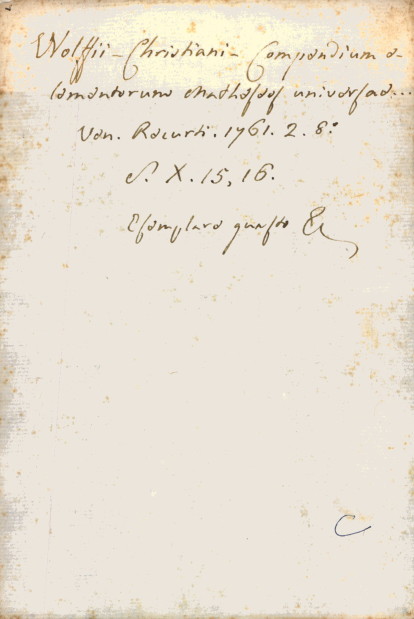 Wolffii - Christiani - Compendium e-
lementorum Matheseos universae...
Ven. Recurti. 1761. 2. 8.º
S. X. 15, 16.
Esemplare guasto &
C